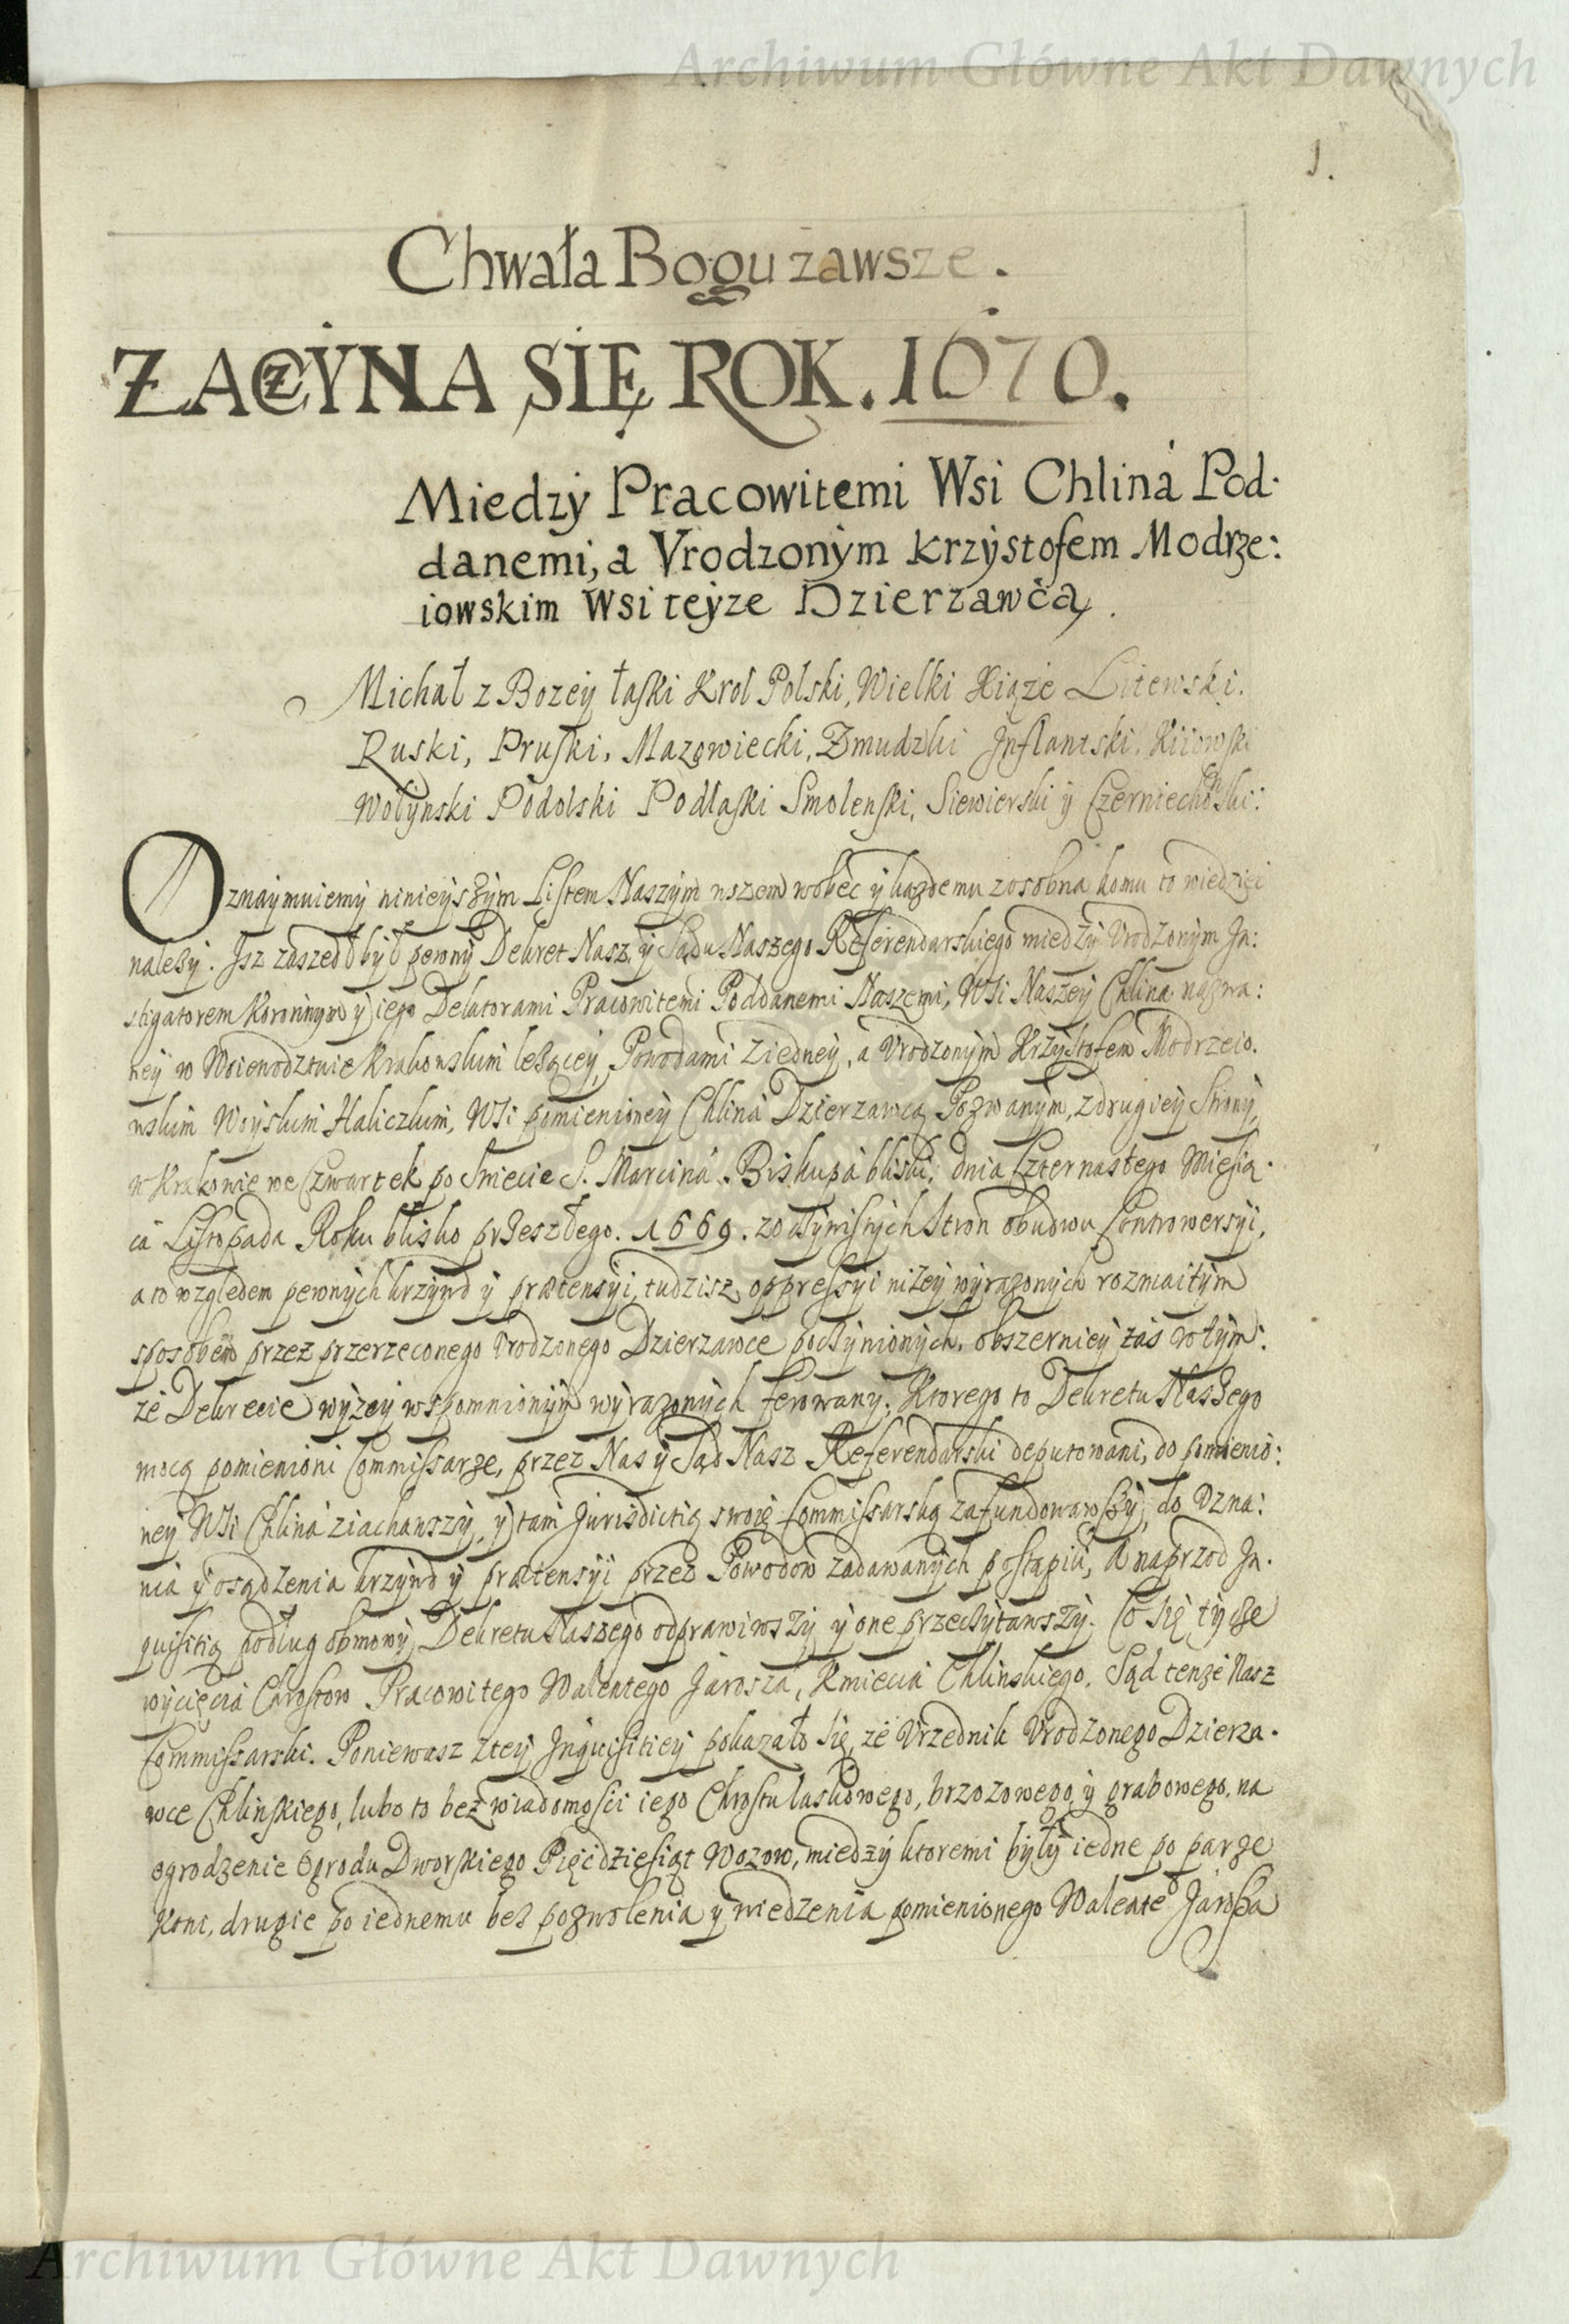 Archiwum Główne Akt Dawnych
1.
Chwała Bogu zawsze.
ZACZYNA SIĘ ROK. 1670.
Miedzy Pracowitemi Wsi Chlina Pod-
danemi, a Vrodzonym Krzystofem Modrze:
iowskim Wsi teyze Dzierzawcą.
Michał z Bozey łaski Krol Polski, Wielki Xiąże Litewski.
Ruski, Pruski, Mazowiecki, Zmudzki Inflantski, Kiiowski
Wołynski Podolski Podlaski Smolenski, Siewierski y Czerniechowski:
Oznaymuiemy ninieyszym Listem Naszym wszem wobec y kazdemu zosobna komu to wiedzieć
nalezy. Isz zaszedł był pewny Dekret Nasz y Sądu Naszego Referendarskiego miedzy Vrodzonym In:
stigatorem Koronnym y iego Delatorami Pracowitemi Poddanemi Naszemi, Wsi Naszey Chlina nazwa:
ney w Woiewodztwie Krakowskim lezącey, Powodami ziedney, a Vrodzonym Krzystofem Modrzeio.
wskim Woyskim Halickim, Wsi pomienioney Chlina Dzierzawcą Pozwanym, zdrugiey Strony,
w Krakowie we Czwartek po Swiecie S. Marcina Biskupa bliski, dnia Czternastego Miesią-
ca Listopada Roku blisko przeszłego. 1669. zoczywistych Stron obudwu Controwersyi,
a to względem pewnych krzywd y prætensyi, tudzisz oppressyi nizey wyrazonych rozmaitym
sposobem przez przerzeconego Vrodzonego Dzierzawce poczynionych, obszerniey zas w tym:
ze Dekrecie wyzey wspomnionym wyrazonych ferowany. Ktorego to Dekretu Naszego
mocą pomienioni Commissarze, przez Nas y Sąd Nasz Referendarski deputowani, do pomienio:
ney Wsi Chlina ziachawszy, y tam Jurisdictią swoię Commissarską zafundowawszy, do Vzna:
nia y osądzenia krzywd y prætensyi przez Powodow zadawanych postąpili, A naprzod In-
quisitią podług obmowy Dekretu Naszego odprawiwszy y one przeczytawszy. Co się tycze
wycięcia Chrostow Pracowitego Walentego Jarosza, Kmiecia Chlinskiego. Sąd tenze Nasz
Commissarski. Poniewasz ztey Inquisitiey pokazało się, ze Vrzednik Vrodzonego Dzierza-
wce Chlinskiego, lubo to bez wiadomosci iego Chrostu laskowego, brzozowego, y grabowego, na
ogrodzenie Ogrodu Dworskiego Pięcdziesiąt Wozow, miedzy ktoremi były iedne po parze
Koni, drugie po iednemu bez pozwolenia y wiedzenia pomienionego Walente⁰ Jarosza
Archiwum Główne Akt Dawnych